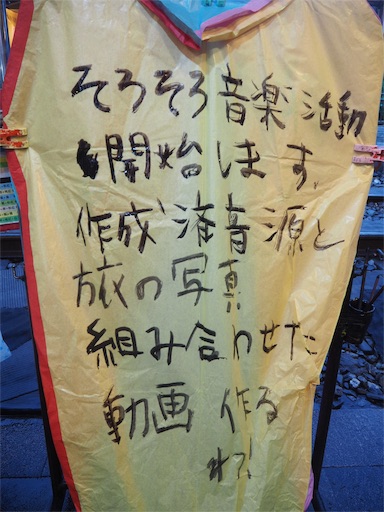 そろそろ音楽活動
開始します。
作成済音源と
旅の写真
組み合わせた
動画 作る
ね!